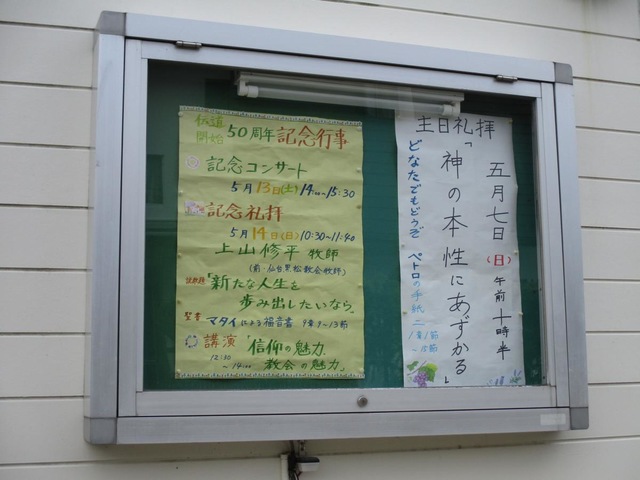 伝道開始 50周年記念行事
記念コンサート
5月13日(土) 14:00~15:30
記念礼拝
5月14日(日) 10:30~11:40
上山修平 牧師
(前・仙台黒松教会牧師)
説教題「新たな人生を
歩み出したいなら」
聖書 マタイによる福音書 9章9~13節
講演「信仰の魅力
12:30~14:00 教会の魅力」
主日礼拝
五月七日(日)午前十時半
「神の本性にあずかる」
どなたでもどうぞ ペトロの手紙 二
1章1節